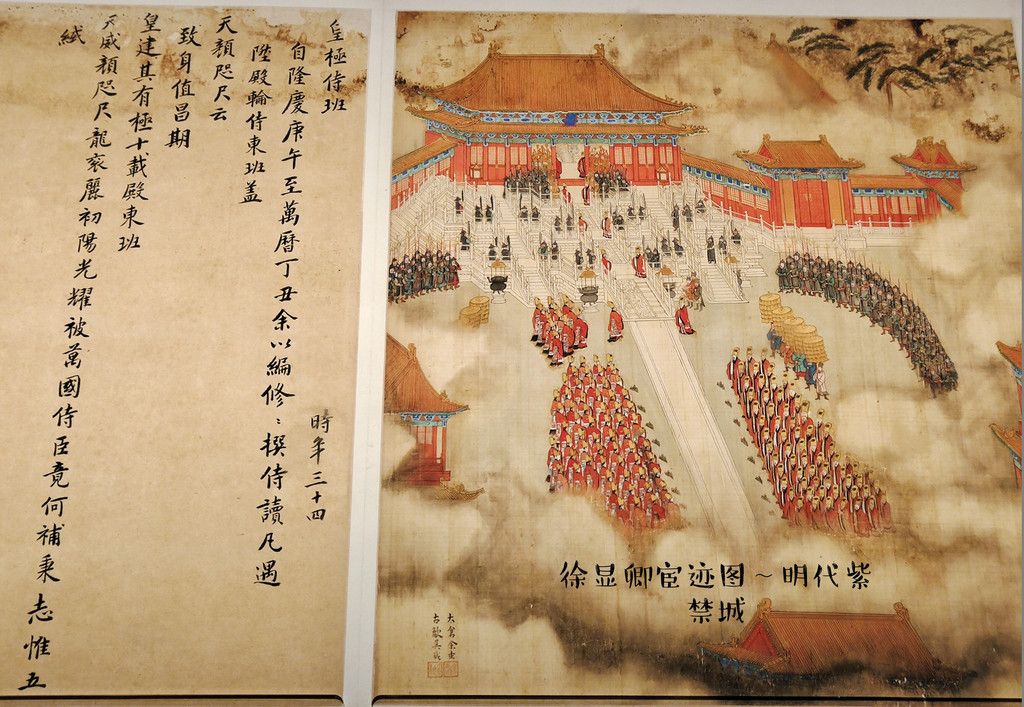 皇極侍班
自隆慶庚午至萬曆丁丑余以編修
撰侍讀凡遇
時年三十四
陞殿輪侍東班蓋
天顏咫尺云
致身值昌期
皇建其有極十載殿東班
天威顏咫尺龍袞麗初陽光耀被萬國侍臣竟何補秉志惟五
絨
徐显卿宦迹图~明代紫
禁城